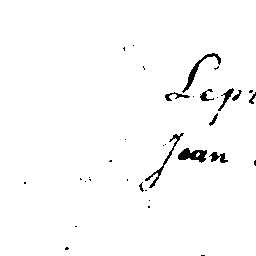 Lepr
Jean